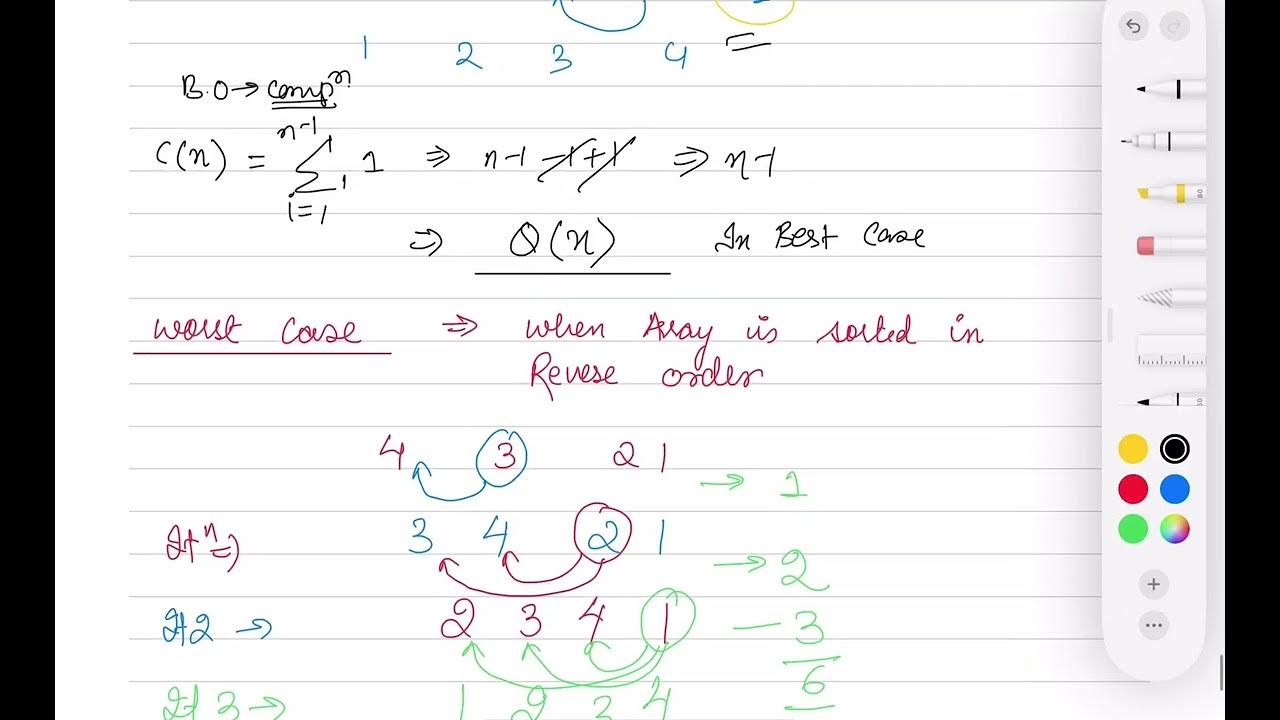 1 2 3 4
B.O → compⁿ
n-1
C(n) = Σ 1 ⇒ n-1 -1+1 ⇒ n-1
i=1
⇒ Θ(n) In Best Case
worst case ⇒ when Array is sorted in
Revese order
4 3 2 1 → 1
Itⁿ ⇒ 3 4 2 1 → 2
It2 → 2 3 4 1 — 3
6
It 3 → 1 2 3 4